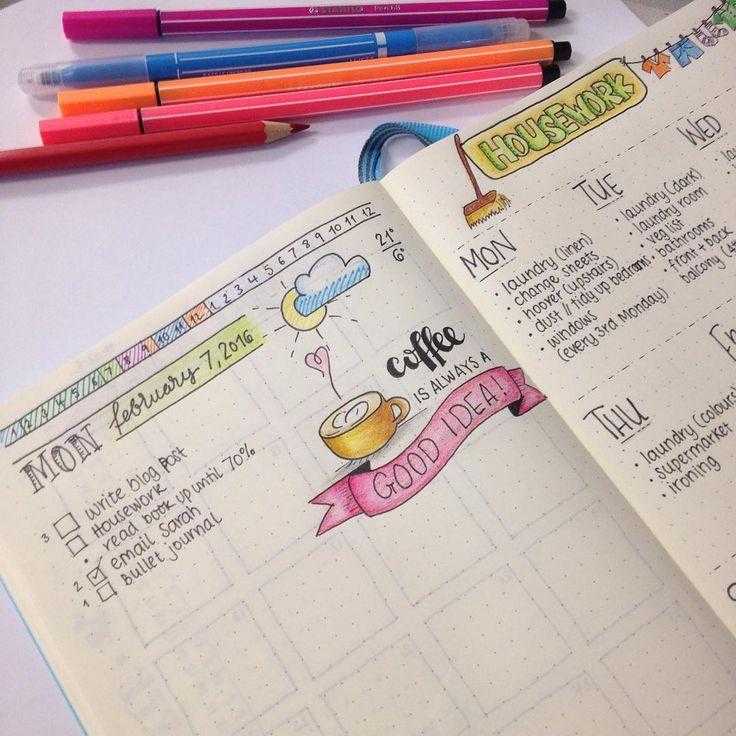 STABILO Pen 68
9 10 11 12 1 2 3 4 5 6 7 8 9 10 11 12
21°
6°
MON february 7, 2016
3 write blog post
Housework
• read book up until 70%
2 email Sarah
1 Bullet journal
coffee
IS ALWAYS A
GOOD IDEA!
HOUSEWORK
MON
• laundry (linen)
• change sheets
• hoover (upstairs)
• dust // tidy up bedroom
• windows
(every 3rd Monday)
TUE
• laundry (dark)
• laundry room
• veg list
• bathrooms
• Front + back
balcony
WED
THU
• laundry (colours)
• supermarket
• ironing